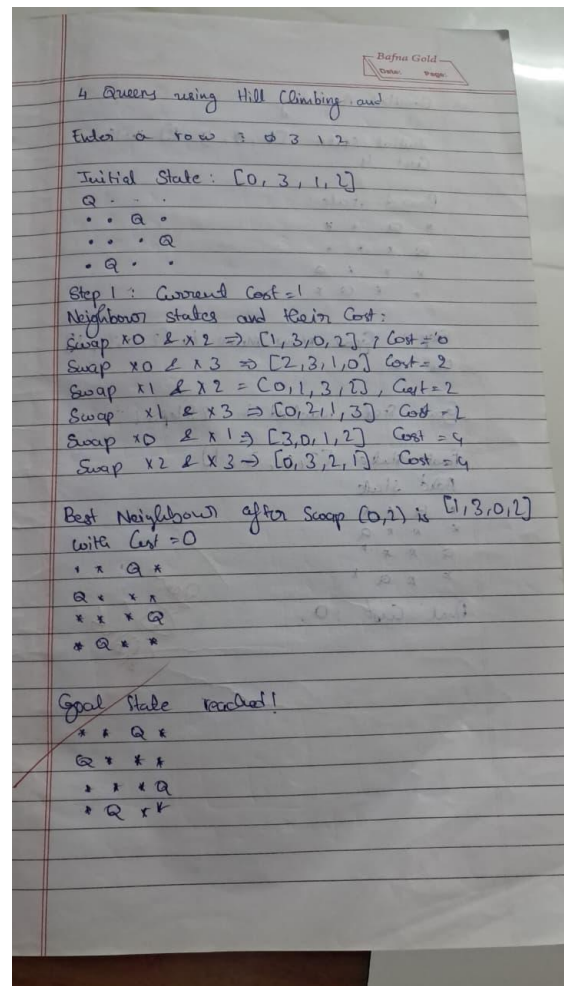 Bafna Gold
Date: Page:
4 Queens using Hill Climbing and
Enter a row : 0 3 1 2
Initial State : [0, 3, 1, 2]
Q · · ·
· · Q ·
· · · Q
· Q · ·
Step 1 : Current Cost = 1
Neighbour states and their Cost:
Swap x0 & x2 => [1, 3, 0, 2] , Cost = 0
Swap x0 & x3 => [2, 3, 1, 0] Cost = 2
Swap x1 & x2 = [0, 1, 3, 2], Cost = 2
Swap x1 & x3 => [0, 2, 1, 3] Cost = 2
Swap x0 & x1 => [3, 0, 1, 2] Cost = 4
Swap x2 & x3 -> [0, 3, 2, 1] Cost = 4
Best Neighbour after Swap (0,2) is [1, 3, 0, 2]
with Cost = 0
* * Q *
Q * * *
* * * Q
* Q * *
Goal State reached!
* * Q *
Q * * *
* * * Q
* Q * *